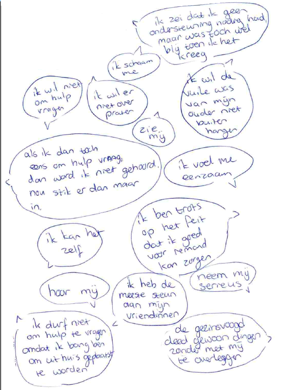 ik zei dat ik geen
ondersteuning nodig had,
maar was toch wel
blij toen ik het
kreeg
ik schaam
me
ik wil niet
om hulp
vragen
ik wil er
niet over
praten
ik wil de
vuile was
van mijn
ouder niet
buiten
hangen
zie my
als ik dan toch
eens om hulp vraag,
dan word ik niet gehoord.
nou stik er dan maar
in.
ik voel me
eenzaam
ik kan het
zelf
ik ben trots
op het feit
dat ik goed
voor iemand
kan zorgen
hoor mij
ik heb de
meeste steun
aan mijn
vriendinnen
neem my
serieus
ik durf niet
om hulp te vragen
omdat ik bang ben
om uit huis geplaatst
te worden
de gezinsvoogd
deed gewoon dingen
zonder met my
te overleggen